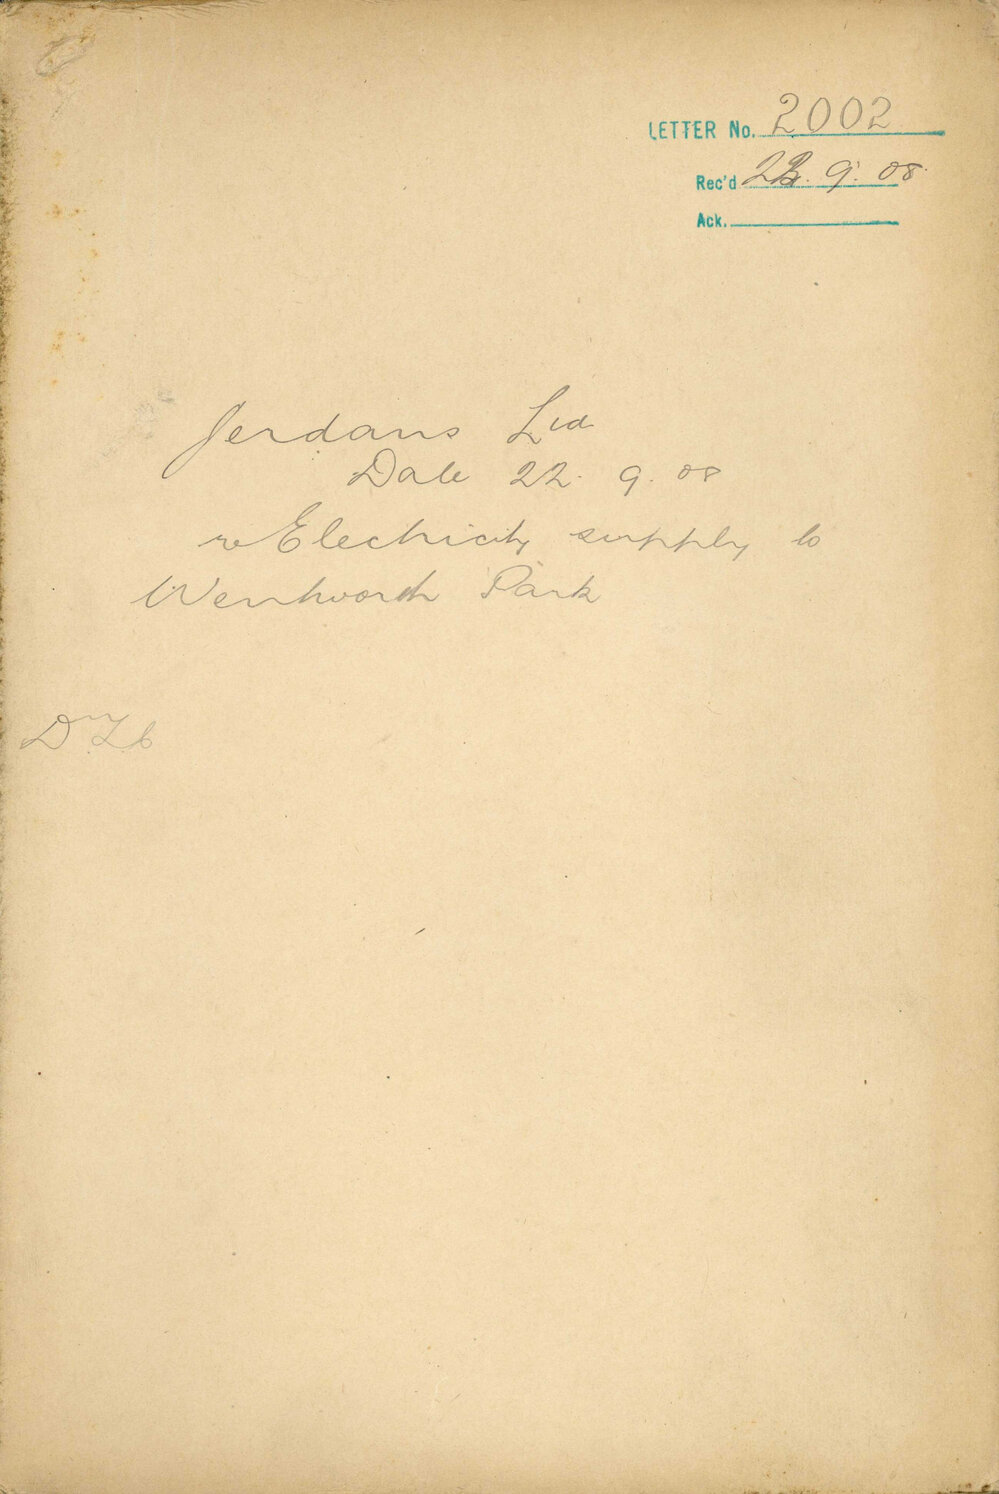 LETTER No. 2002
Rec'd 23. 9. 08.
Ack.
Jerdans Ltd
Date 22. 9. 08
re Electricity supply to
Wentworth Park